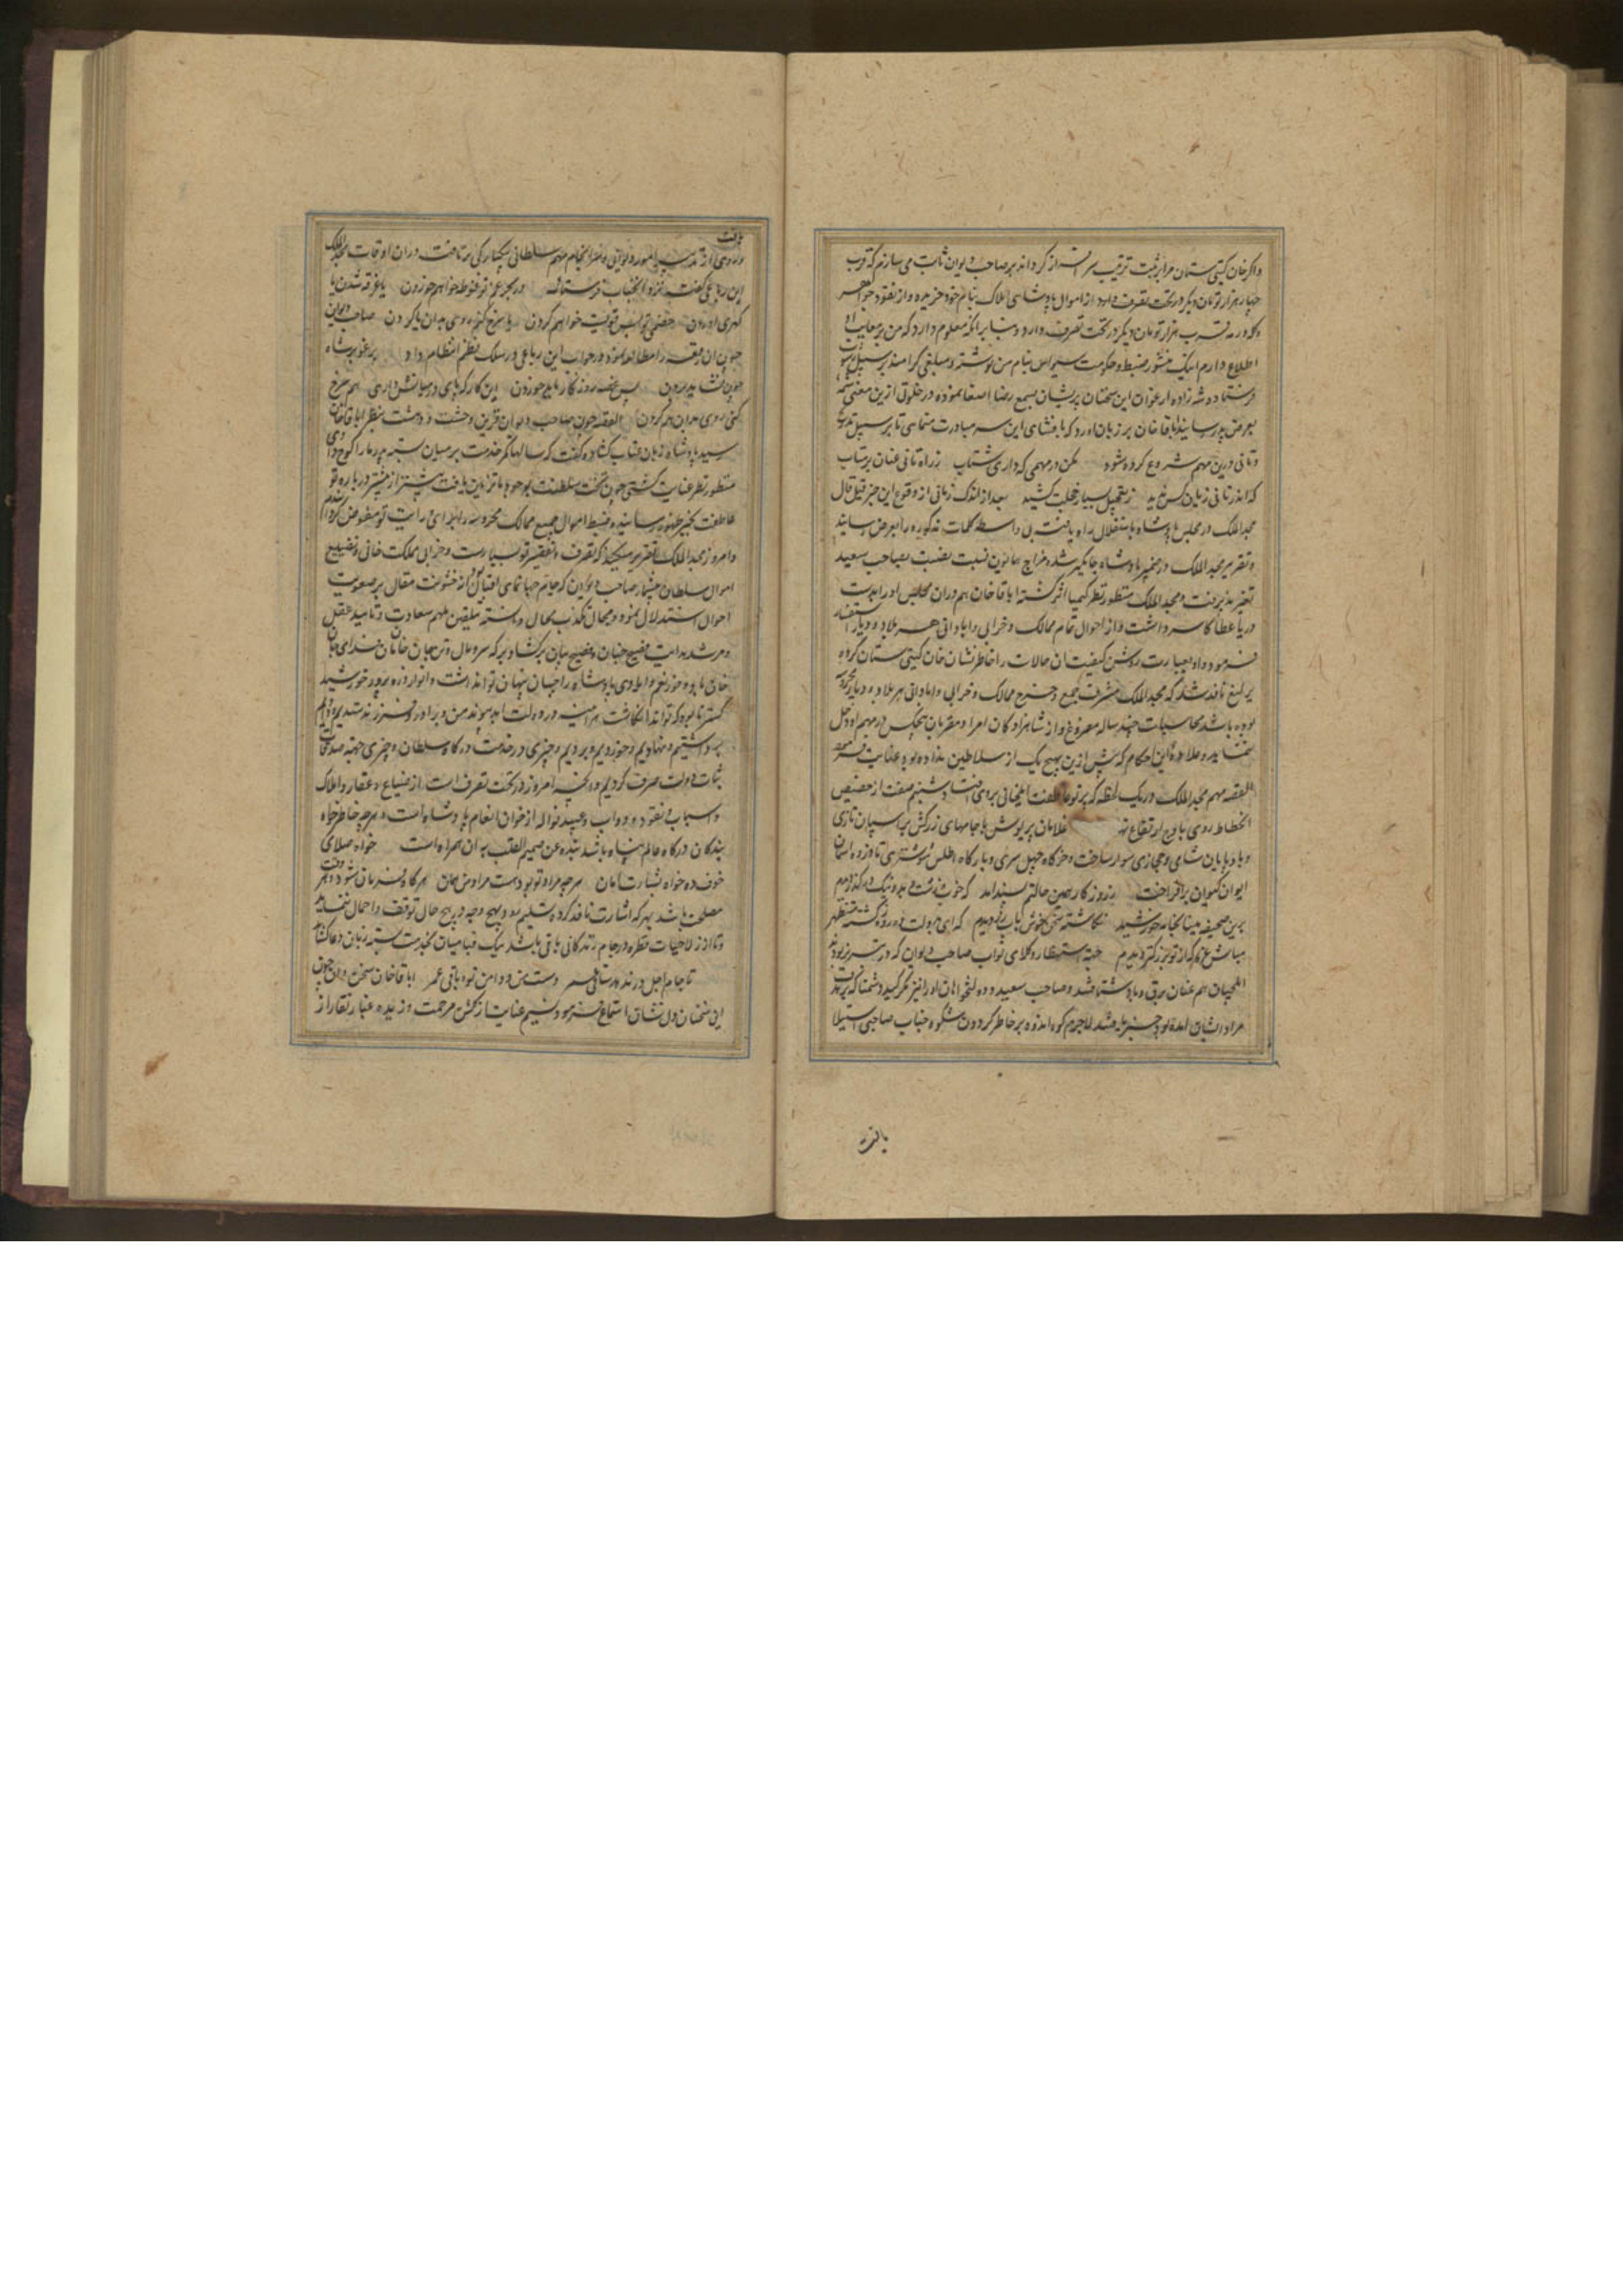 و اگر خان گیتی ستان مرا بتربیت سرافراز گرداند بر صاحب دیوان ثابت می سازم که قرب
چهار هزار تومان دیگر در تحت تصرف دارد از اموال پادشاهی املاک بنام خود خریده و از نقود جواهر
و گله و رمه قرب هزار تومان دیگر در تحت تصرف دارد و بنا بر آنکه معلوم دارد که من بر معایب او
اطلاع دارم اینک منشور ضبط و حکومت سیواس بنام من نوشته و مبلغی کرامند بر سبیل رشوت
فرستاده شهزاده ارغوان این سخنان پریشان بسمع رضا اصغا نموده در خلوتی ازین معنی شمه
بعرض پدر رسانید اباقا خان بر زبان آورد که بافشای این سر مبادرت منمای تا بر سبیل تدریج
و تانی درین مهم شروع کرده شود مکن در مهمی که داری شتاب ز راه تانی عنان بر متاب
که اندر تانی زیان کس ندید ز تعجیل بسیار خجلت کشید بعد از اندک زمانی از وقوع این خبر قیل و قال
مجد الملک در مجلس پادشاه باستقلال راه یافت بی واسطه کلمات مذکوره را بعرض رسانید
و تقریر مجد الملک در ضمیر پادشاه جایگیر شد و مزاج همایون نسبت بصاحب سعید
تغیر پذیرفت و مجد الملک منظور نظر کیمیا اثر گشته اباقا خان هم دران مجلس او را بدست
دریا عطا کاسه داشت و از احوال تمام ممالک و خرابی و ابادانی هر بلاد و دیار استفسار
فرموده او بعبارت روشن کیفیت آن حالات را خاطرنشان خان گیتی ستان کرد
یرلیغ نافذ شد که مجد الملک مشرف جمیع و خرج ممالک و خرابی و ابادانی هر بلاد و دیار محروسه
بوده باشد محاسبات چند ساله مفروغ و از شاهزادگان امرا و مقربان هیچکس در مهم او دخل
ننماید و علاوه این احکام که پیش ازین هیچ یک از سلاطین نداده بود عنایت فرمود
القصه مهم مجد الملک در یک لحظه که پرتو عاطفت ایلخانی بروی افتاد شبنم صفت از حضیض
انحطاط روی باوج ارتفاع نهاد غلامان پریوش با جامهای زرکش بر اسپان تازی
و باد پایان شامی و حجازی سوار ساخت و خرگاه چهل سری و بارگاه اطلس شوشتری تا ذروه آسمان
ایوان کیوان برافراخت ز روزگار همین حالتم پسند آمد که خوب و زشت و بد و نیک در گذر دیدم
برین صحیفه مینا بخامه خورشید نگاشته سخنی خوش بآب زر دیدم که ای بدولت ده روزه گشته مستظهر
مباش غره که از تو بزرگتر دیدم جهة استحضار وکلای نواب صاحب دیوان که در تبریز بودند
ایلچیان هم عنان برق و باد شتافتند و صاحب سعید و دولتخواهان او را نیز
مراد ایشان آمده بود لاجرم کوه اندوه بر خاطر گردون شکوه جناب صاحبی استیلا
یافت
یافت
و روی از تدبیر امور دیوانی و سرانجام مهم سلطانی بیکبارگی برتافت دران اوقات مجد الملک
این رباعی گفت نزد آنجناب فرستاد در بحر غم تو غوطه خواهم خوردن یا غرقه شدن یا
گهری آوردن خصمی تو بس قویست خواهم کردن یا سرخ کنم روی بدان یا گردن صاحب دیوان
چون آن رقعه را مطالعه نمود در جواب این رباعی در سلک نظم انتظام داد یرغو بر شاه
چون نشاید بردن بس غصه روزگار باید خوردن این کار که پای در میانش داری هم سرخ
کنی روی بدان هم گردن القصه چون صاحب دیوان قرین وحشت و دهشت بنظر اباقا خان
رسید پادشاه زبان عتاب گشاده گفت که سالها کمر خدمت بر میان بسته پدر ما را کوچ دادی
منظور نظر عنایت گشتی چون تخت سلطنت بوجود ما تزیین یافت بیشتر از پیشتر درباره تو
عاطفت بحیز ظهور رسانیده ضبط اموال جمیع ممالک محروسه را برای و رویت تو مفوض گردانیدم
و امروز مجد الملک تقریر میکند که تصرف و تقصیر تو بسیارست و خرابی مملکت خانی و تضییع
اموال سلطان بیشمار صاحب دیوان که جام جهان نمای اقبال او از خشونت مقال بر صعوبت
احوال استدلال نمود و مجال تکذیب محال دانسته بتلقین ملهم سعادت و تایید عقل
و مرشد هدایت فصیح جنان و فصیح بیان برگشاد
خان باد و خوردن نعم و ایادی پادشاه را چسان پنهان توان داشت و انوار ذره پرور خورشید
گستر نابوده که تواند انگاشت هر آینه در دولت ابد پیوند من و برادر و فرزند ستدیم و دادیم
برداشتیم و نهادیم و خوردیم و بردیم و چیزی در خدمت درگاه سلطان و چیزی جهة صدقات
ثبات دولت صرف کردیم و آنچه امروز در تحت تصرف است از ضیاع و عقار و املاک
و اسباب و نقود و دواب و عبید نواله از خوان انعام پادشاه است و هرچه خاطر خواه
بندگان درگاه عالم پناه باشد بنده عن صمیم القلب بدان همراه است خواه صلای
خوف ده خواه بشارت امان هرچه مراد تو بود هست مراد من همان هرگاه فرمان شود و وقت
مصلحت باشد بهر که اشارت نافذ گردد تسلیم رود و بهیچ وجه و بهیچ حال توقف و اهمال ننماید
و تا از زلال حیات قطره در جام زندگانی باقی باشد یک قبا میان بخدمت بسته زبان دعا گشاید
تا جام اجل در ندهد ساقی عمر دست من و دامن تو و باقی عمر اباقا خان سخن دان چون
این سخنان دل نشان استماع فرمود نسیم عنایت از گلشن مرحمت وزیده غبار نقار از